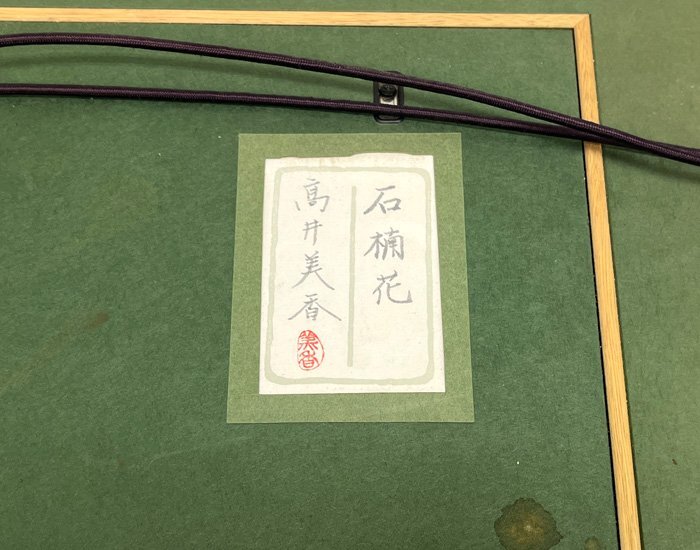 石楠花
高井美香
美香